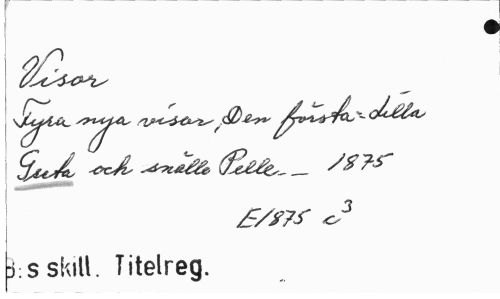 Visor
Fyra nya visor, Den första: Lilla
Greta och snälle Pelle. _ 1875
E1875 c³
B:s skill. Titelreg.